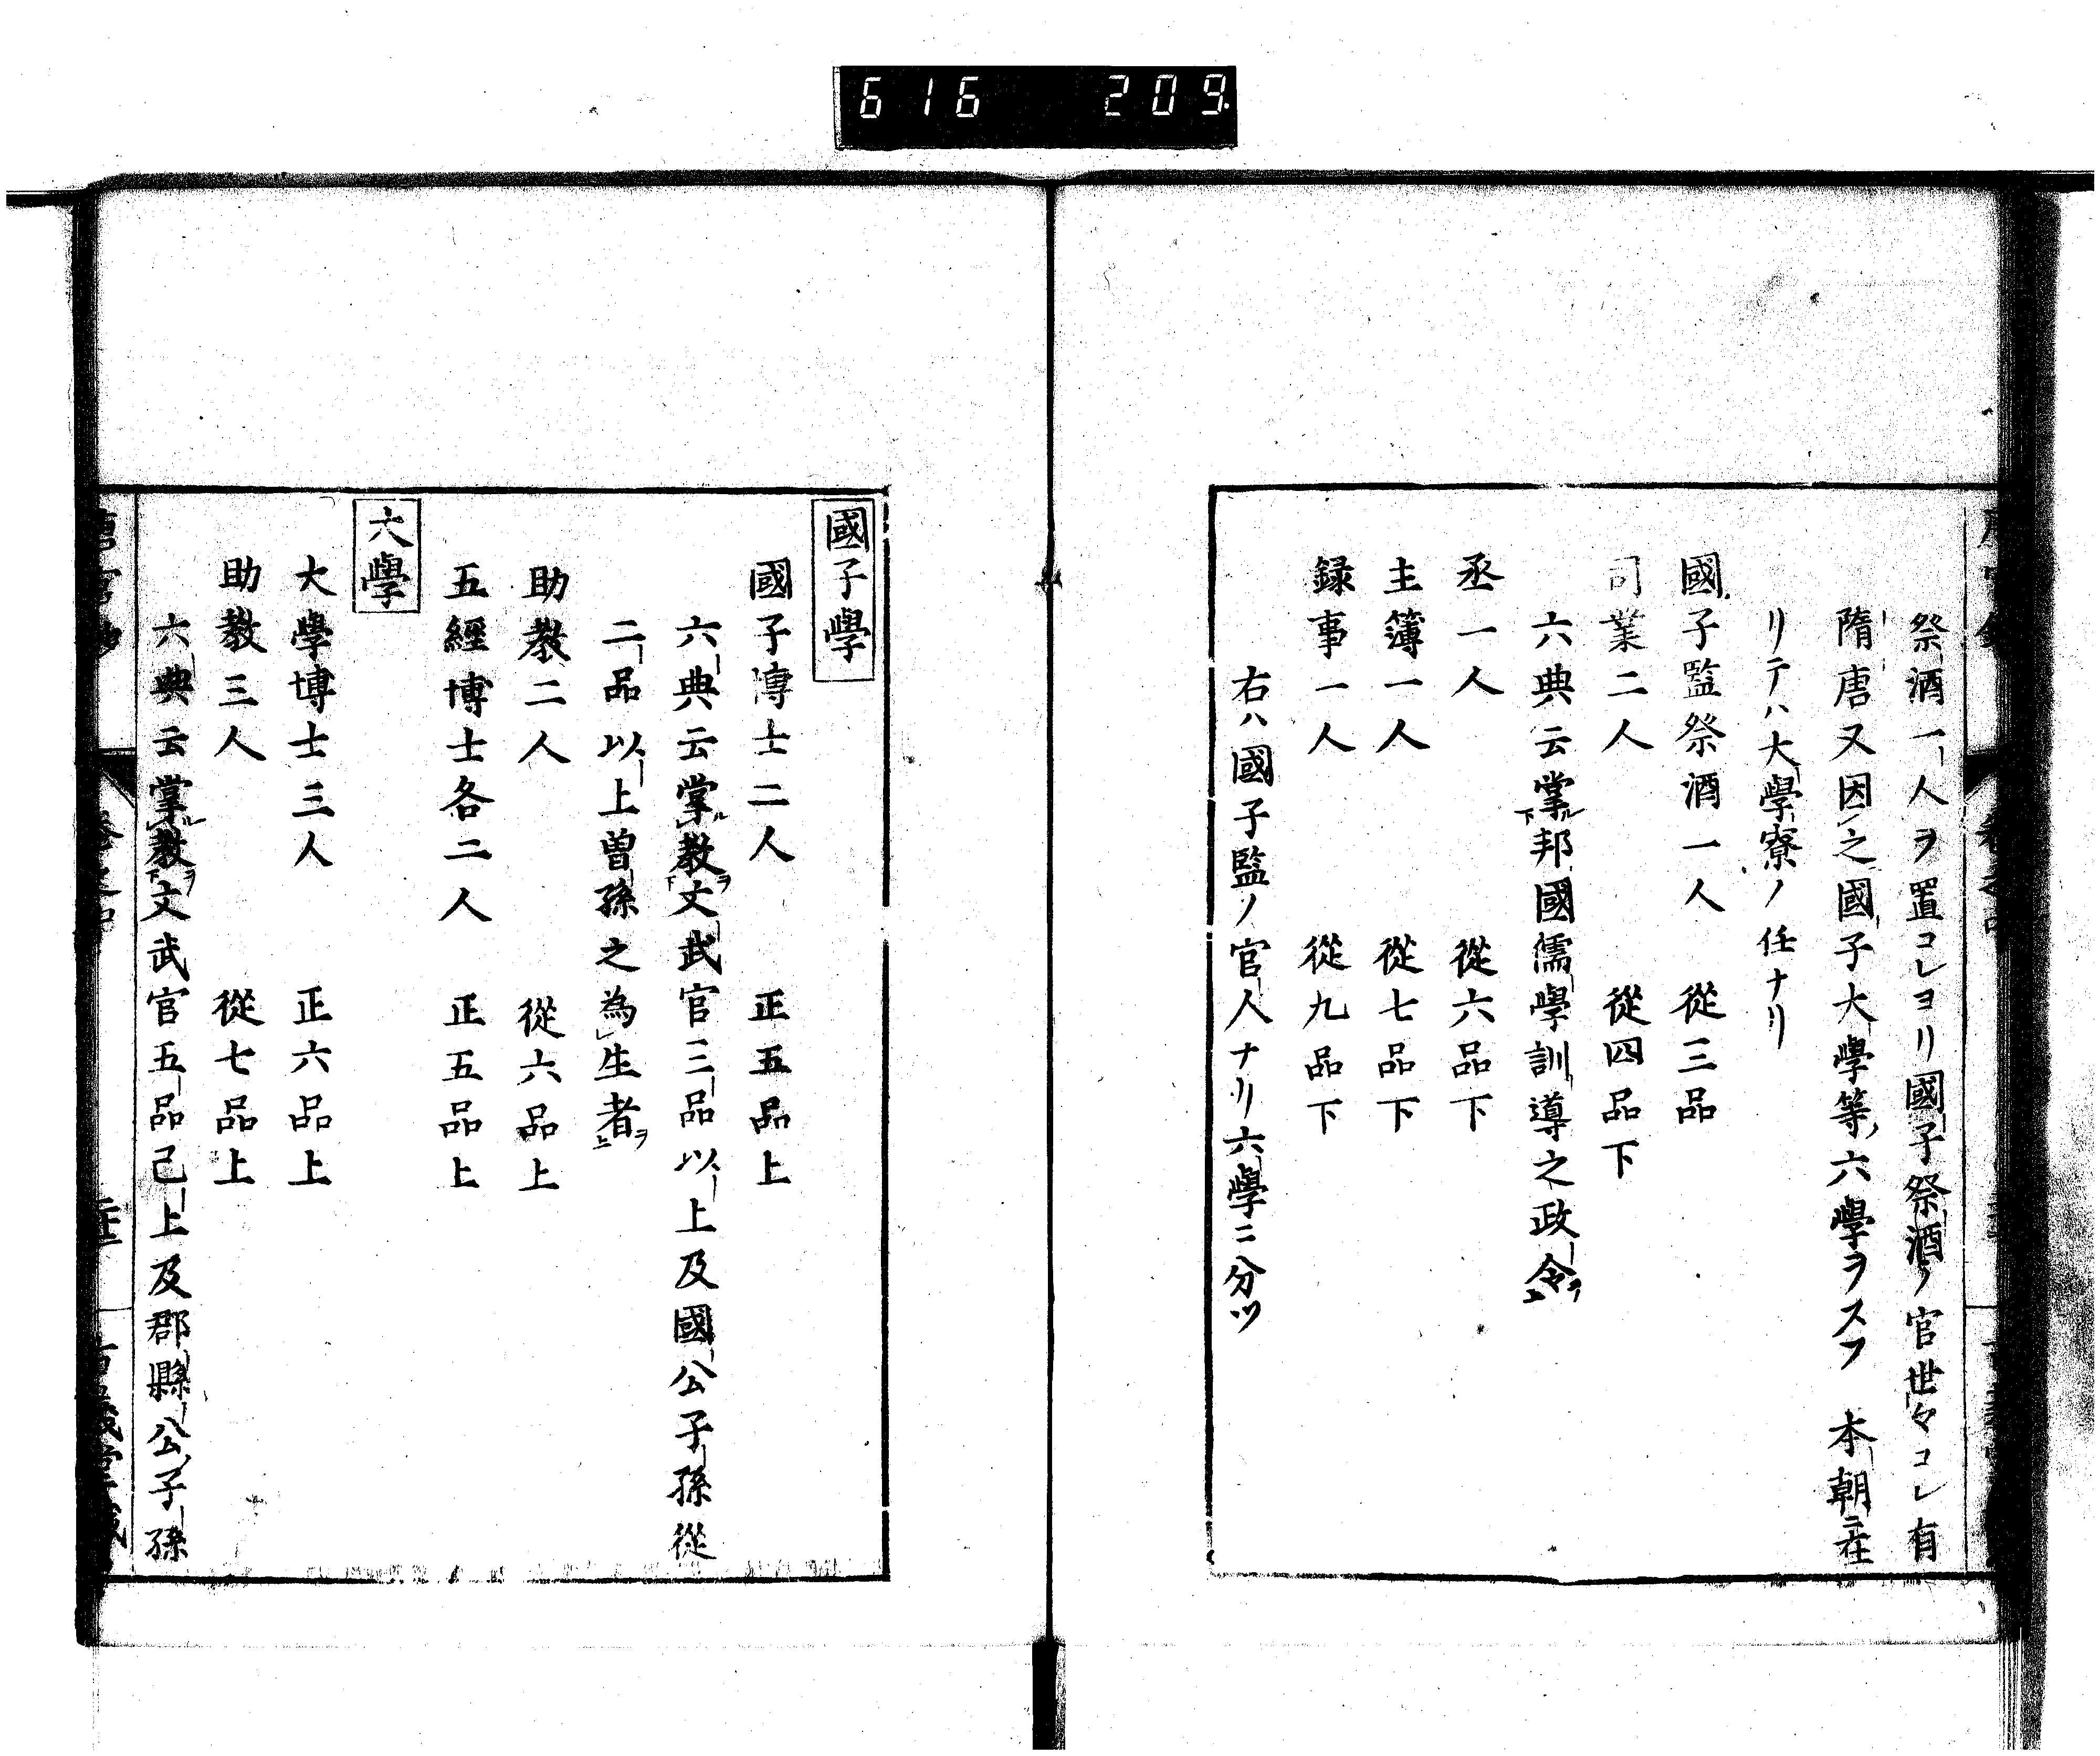 616 209
祭酒一人ヲ置コレヨリ國子祭酒ノ官世々コレ有
隋唐又因之國子大學等ノ六學ヲスフ 本朝ニ在
リテハ大學寮ノ任ナリ
國子監祭酒一人 從三品
司業二人 從四品下
六典云掌ル下邦國儒學訓導之政令ヲ上
丞一人 從六品下
主簿一人 從七品下
録事一人 從九品下
右ハ國子監ノ官人ナリ六學ニ分ツ
國子學
國子博士二人 正五品上
六典云掌ル教ヲ下文武官三品以上及國公子孫從
二品以上曽孫之為レ生者ヲ上
助教二人 從六品上
五經博士各二人 正五品上
大學
大學博士三人 正六品上
助教三人 從七品上
六典云掌レ教ヲ下文武官五品己上及郡縣公子孫